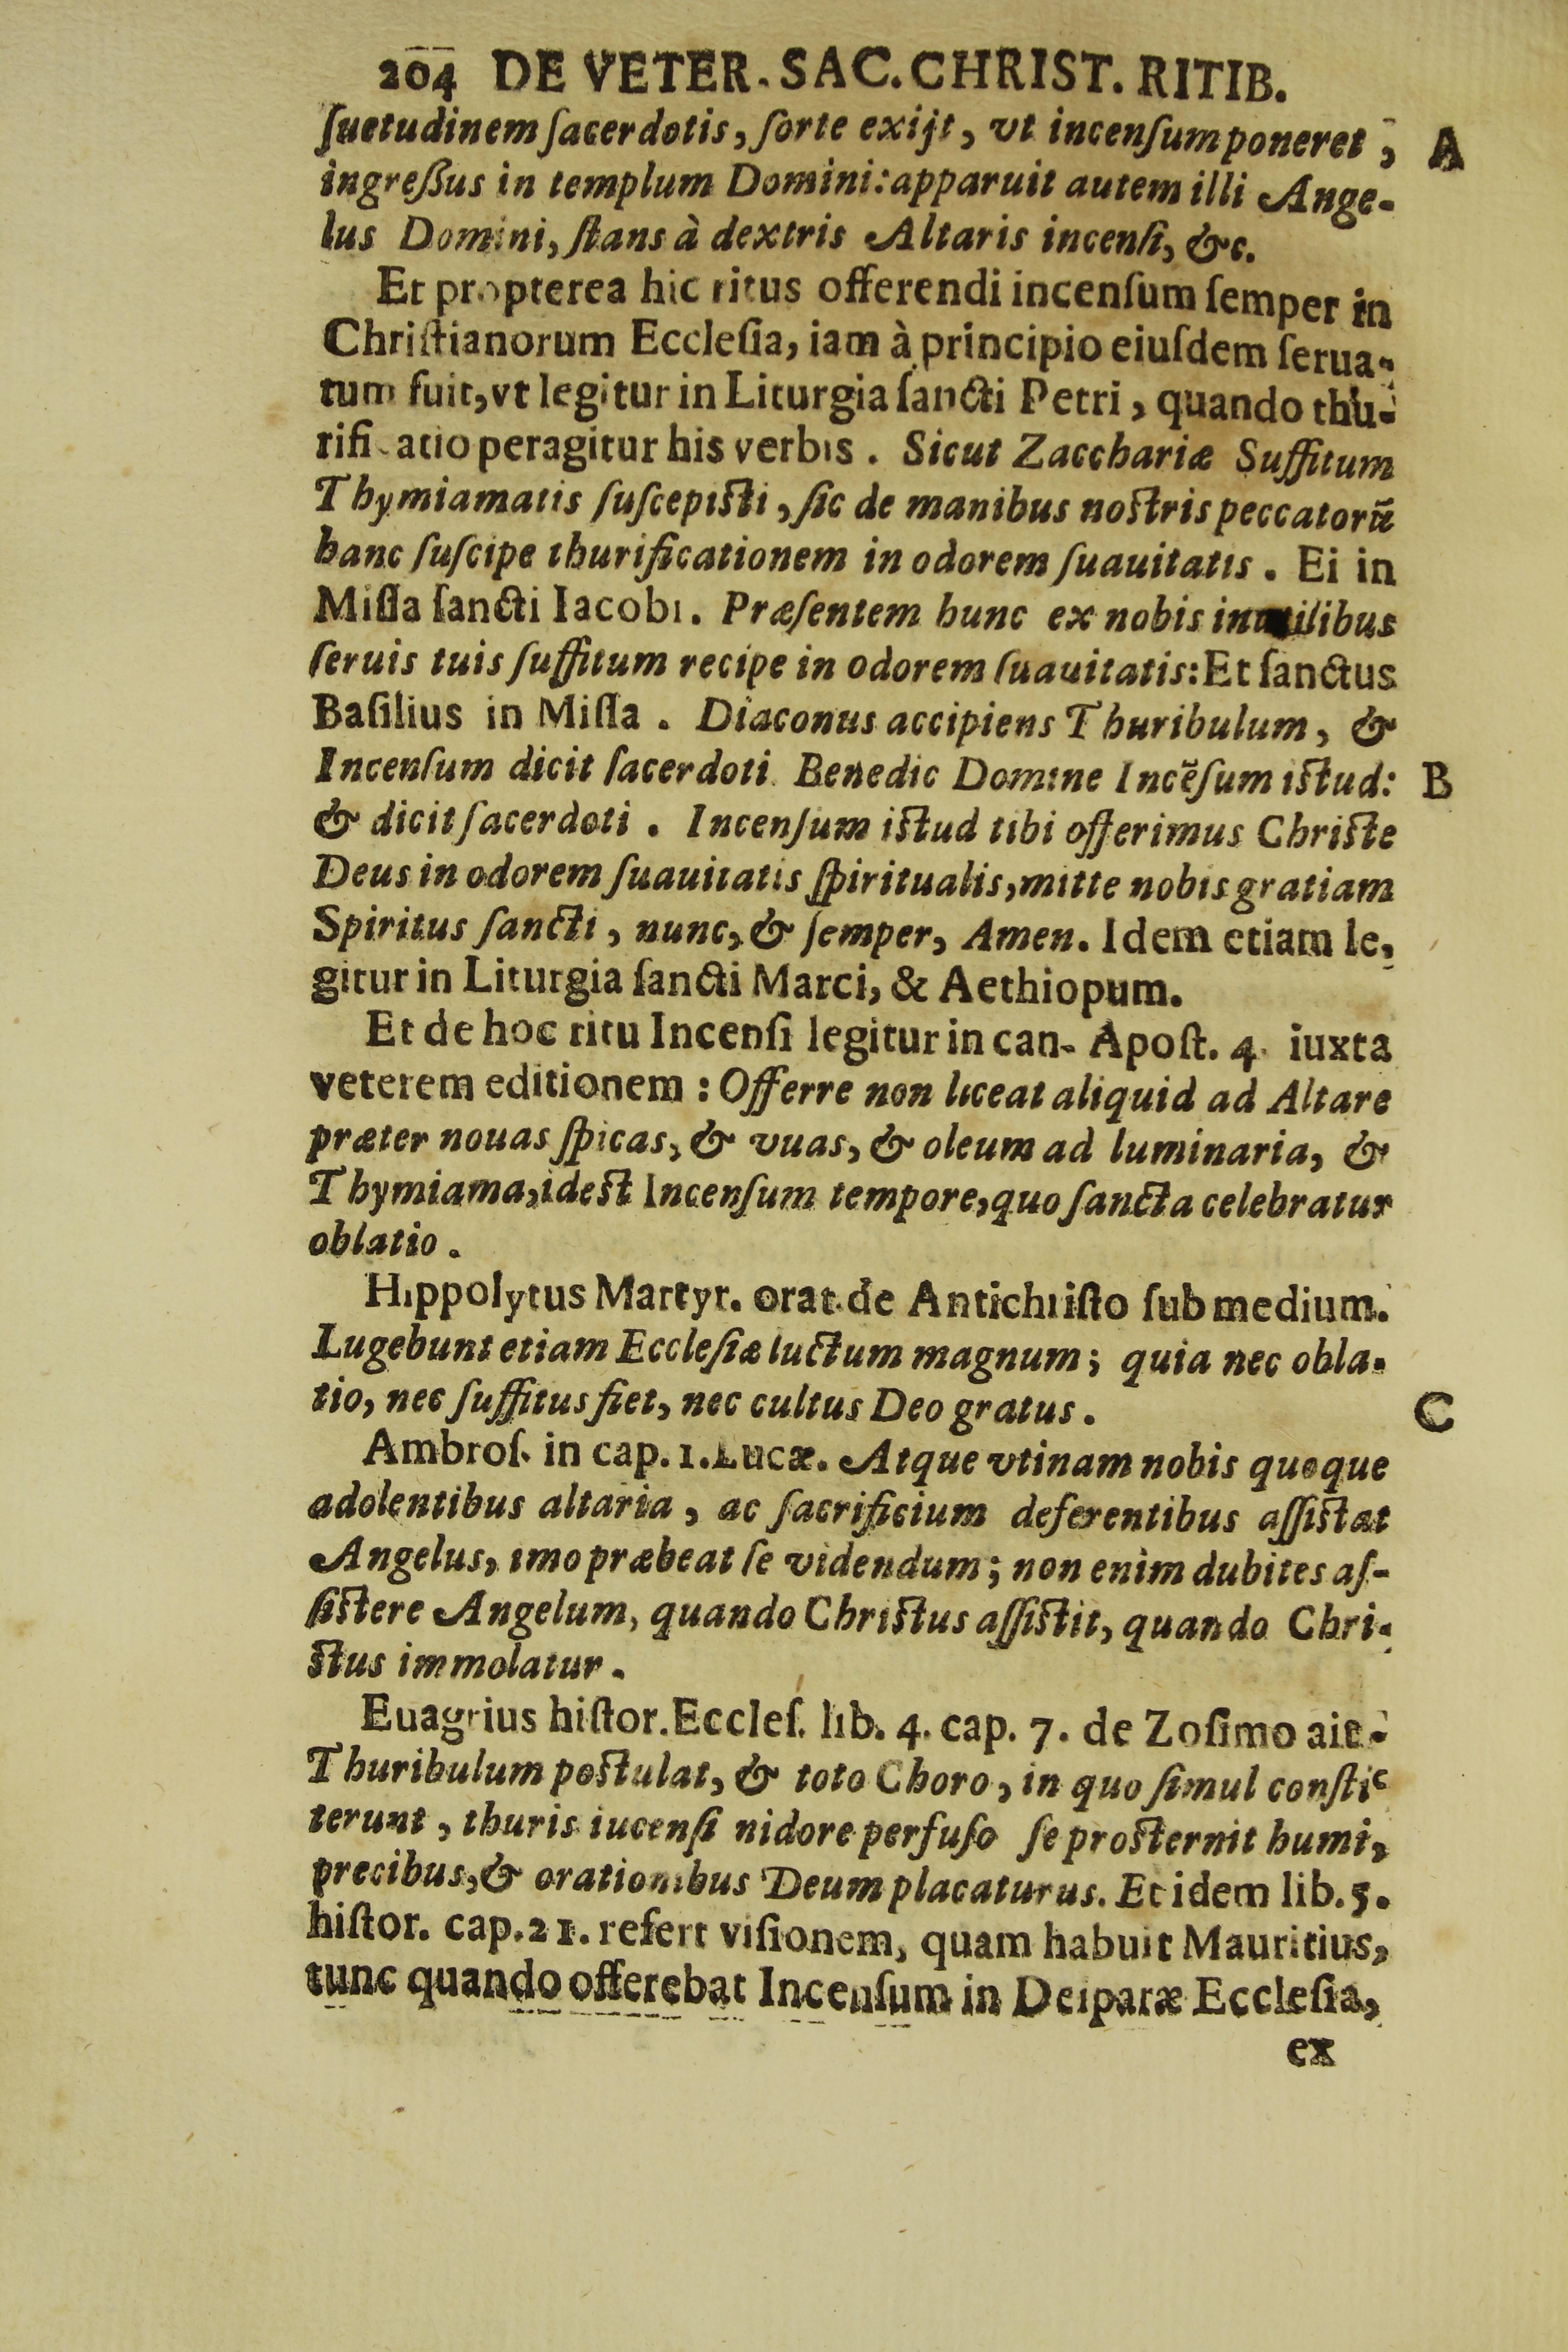 204 DE VETER. SAC. CHRIST. RITIB.
ſuetudinem ſacerdotis, ſorte exijt, vt incenſum poneret, A
ingreßus in templum Domini: apparuit autem illi Ange-
lus Domini, ſtans à dextris Altaris incenſi, &c.
Et propterea hic ritus offerendi incenſum ſemper in
Chriſtianorum Eccleſia, iam à principio eiuſdem ſerua-
tum fuit, vt legitur in Liturgia ſancti Petri, quando thu-
rifi atio peragitur his verbis. Sicut Zacchariæ Suffitum
Thymiamatis ſuſcepiſti, ſic de manibus noſtris peccatorũ
hanc ſuſcipe thurificationem in odorem ſuauitatis. Ei in
Miſſa ſancti Iacobi. Præſentem hunc ex nobis inutilibus
ſeruis tuis ſuffitum recipe in odorem ſuauitatis: Et ſanctus
Baſilius in Miſſa. Diaconus accipiens Thuribulum, &
Incenſum dicit ſacerdoti Benedic Domine Incẽſum iſtud: B
& dicit ſacerdoti. Incenſum iſtud tibi offerimus Chriſte
Deus in odorem ſuauitatis ſpiritualis, mitte nobis gratiam
Spiritus ſancti, nunc, & ſemper, Amen. Idem etiam le,
gitur in Liturgia ſancti Marci, & Aethiopum.
Et de hoc ritu Incenſi legitur in can. Apoſt. 4. iuxta
veterem editionem: Offerre non liceat aliquid ad Altare
præter nouas ſpicas, & vuas, & oleum ad luminaria, &
Thymiama, ideſt Incenſum tempore, quo ſancta celebratur
oblatio.
Hippolytus Martyr. orat. de Antichriſto ſub medium.
Lugebunt etiam Eccleſiæ luctum magnum; quia nec obla-
tio, nec ſuffitus fiet, nec cultus Deo gratus. C
Ambroſ. in cap. 1. Lucæ. Atque vtinam nobis quoque
adolentibus altaria, ac ſacrificium deferentibus aſſiſtat
Angelus, imo præbeat ſe videndum; non enim dubites aſ-
ſiſtere Angelum, quando Chriſtus aſſiſtit, quando Chri-
ſtus immolatur.
Euagrius hiſtor. Eccleſ. lib. 4. cap. 7. de Zoſimo ait.
Thuribulum poſtulat, & toto Choro, in quo ſimul conſtic
terunt, thuris iucenſi nidore perfuſo ſe proſternit humi,
precibus, & orationibus Deum placaturus. Et idem lib. 5.
hiſtor. cap. 21. refert viſionem, quam habuit Mauritius,
tunc quando offerebat Incenſum in Deiparæ Eccleſia,
ex